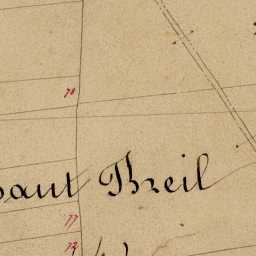 70
haut Breil
77